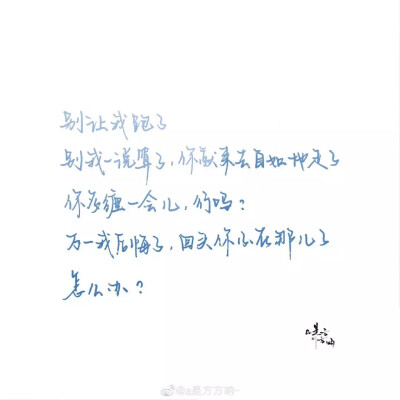 别让我跑了
别我一说算了，你就来去自如地走了
你多缠一会儿，行吗？
万一我后悔了，回头你不在那儿了
怎么办？
@a是方方响-